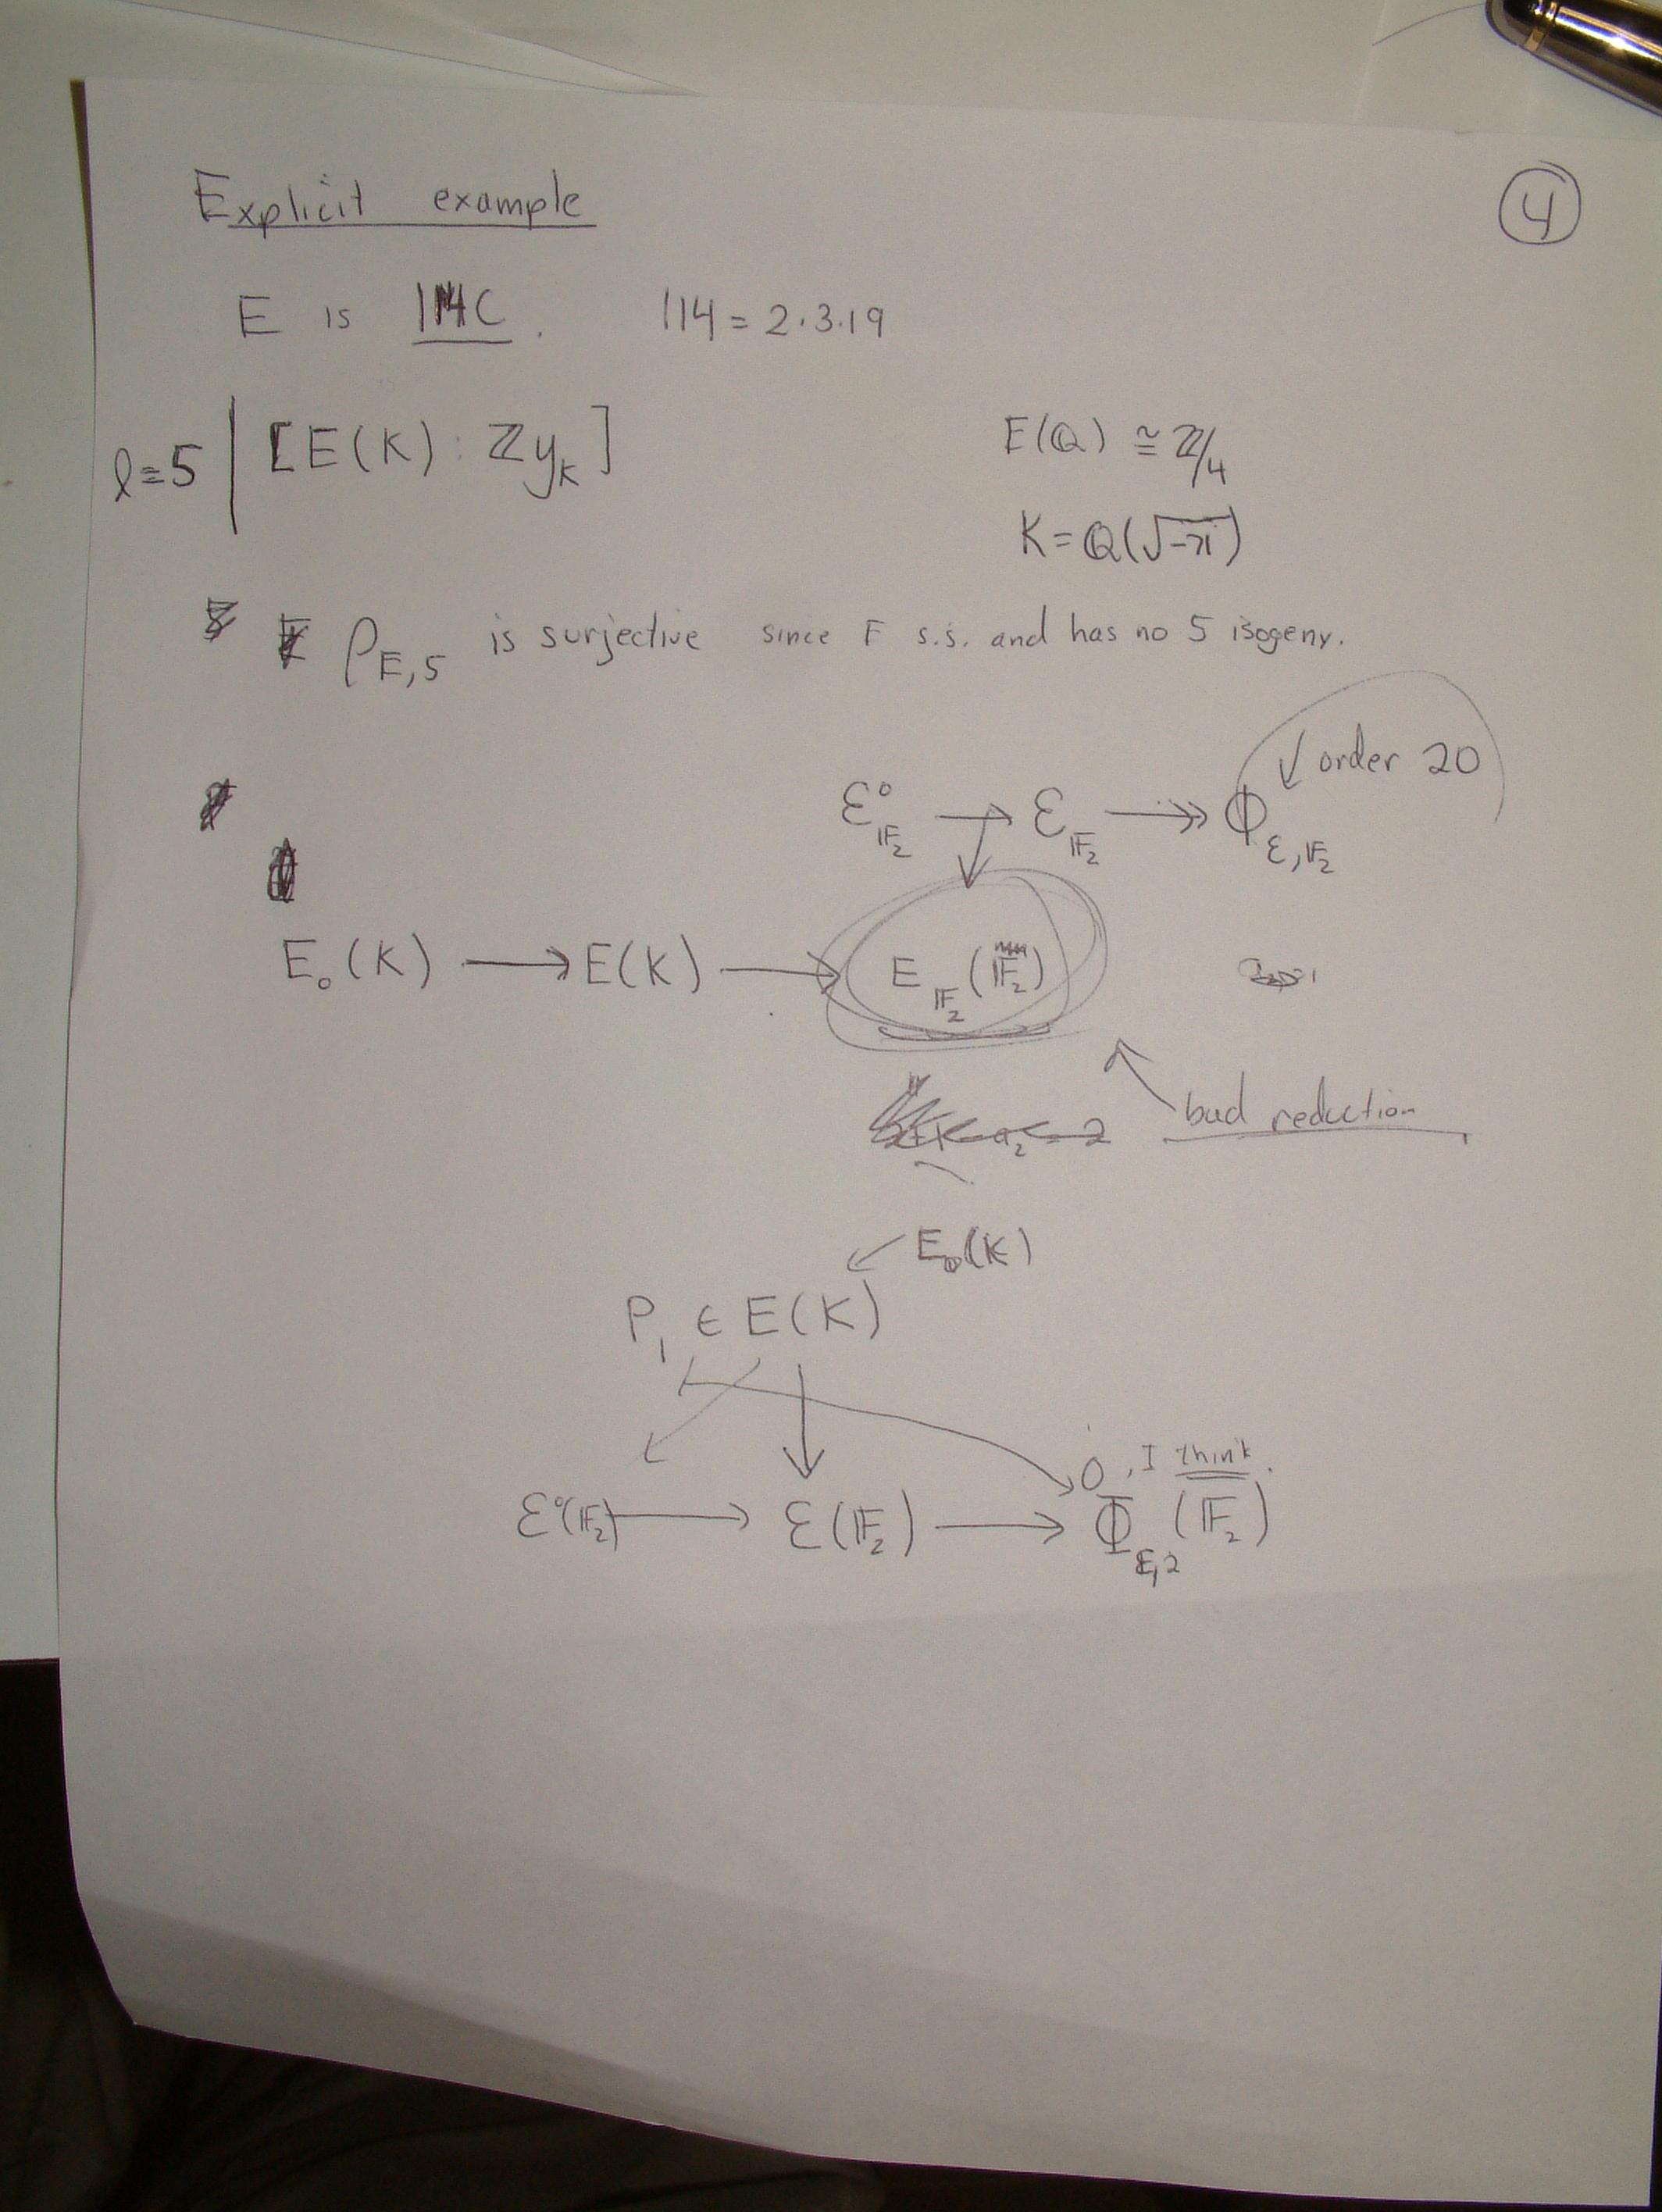 Explicit example
④
E is 114C. 114 = 2·3·19
l=5 | [E(K) : ℤy_K]
E(ℚ) ≅ ℤ/4
K = ℚ(√-71)
ρ_E,5 is surjective since E s.s. and has no 5 isogeny.
↓ order 20
ℰ⁰_𝔽₂ → ℰ_𝔽₂ ↠ Φ_ℰ,𝔽₂
E₀(K) → E(K) → E_𝔽₂(𝔽₂)
bad reduction
E₀(K)
P₁ ∈ E(K)
0, I think.
ℰ⁰(𝔽₂) → ℰ(𝔽₂) → Φ_ℰ,2(𝔽₂)